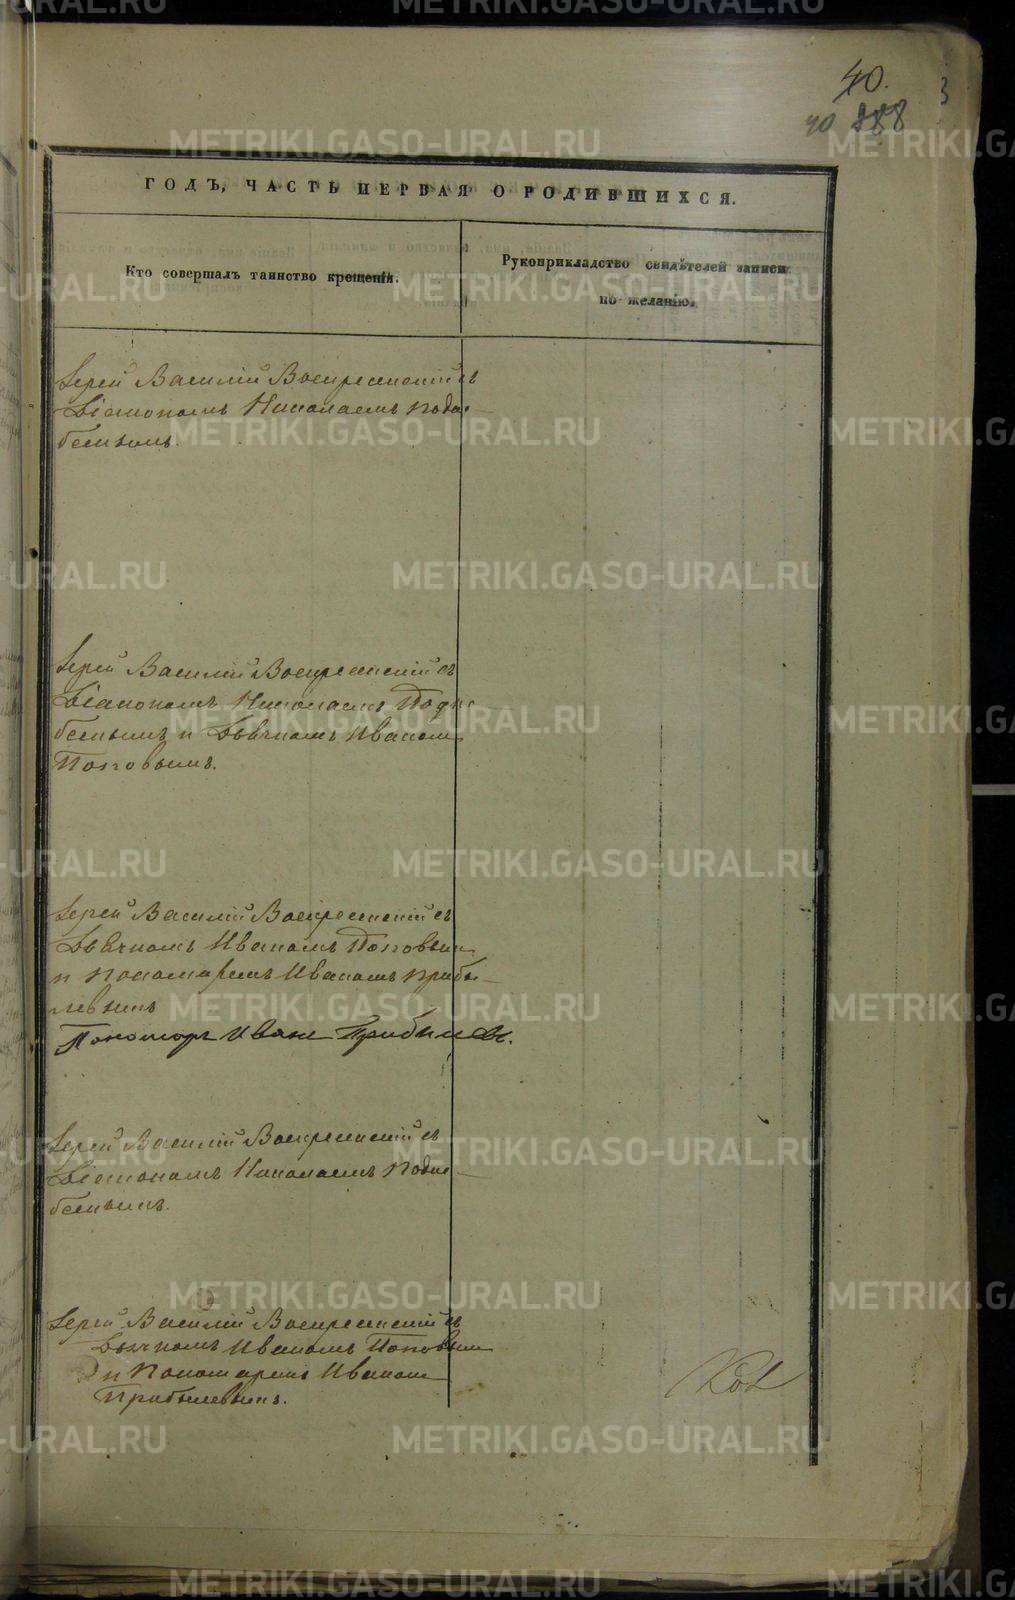 40.
3
40 888
ГОДЪ, ЧАСТЬ ПЕРВАЯ О РОДИВШИХСЯ.
Кто совершалъ таинство крещенія.
Рукоприкладство свидѣтелей записи
по желанію.
Іерей Василій Воскресенскій съ
Діакономъ Николаемъ Подне-
беснымъ.
Іерей Василій Воскресенскій съ
Діакономъ НиколаемъПодне-
беснымъ и Дьячкомъ Иваномъ
Поповымъ.
Іерей Василій Воскресенскій съ
Дьячкомъ Иваномъ Поповымъ
и Пономаремъ Иваномъ Прибы-
левымъ
Пономарь Иванъ Прибылевъ.
Іерей Василій Воскресенскій съ
Діакономъ Николаемъ Подне-
беснымъ.
Іерей Василій Воскресенскій съ
Дьячкомъ Иваномъ Поповымъ
и Пономаремъ Иваномъ
Прибылевымъ.
METRIKI.GASO-URAL.RU